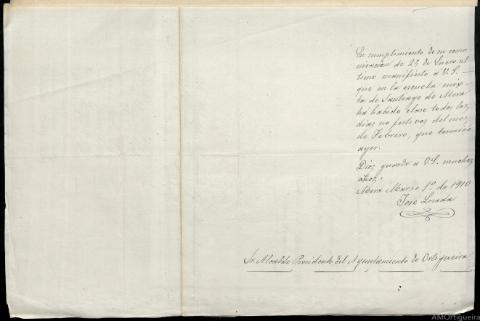 En cumplimiento de su comu
nicación de 25 de Enero ul
timo manifiesto a V.S. -
que en la escuela mix-
ta de Santiago de Mera
ha habido clase todos los
días no festivos del mes
de Febrero, que terminó
ayer.
Dios guarde a V.S. muchos
años.
Mera Marzo 1º de 1910
José
Sr. Alcalde Presidente del Ayuntamiento de Ortigueira
AMOrtigueira